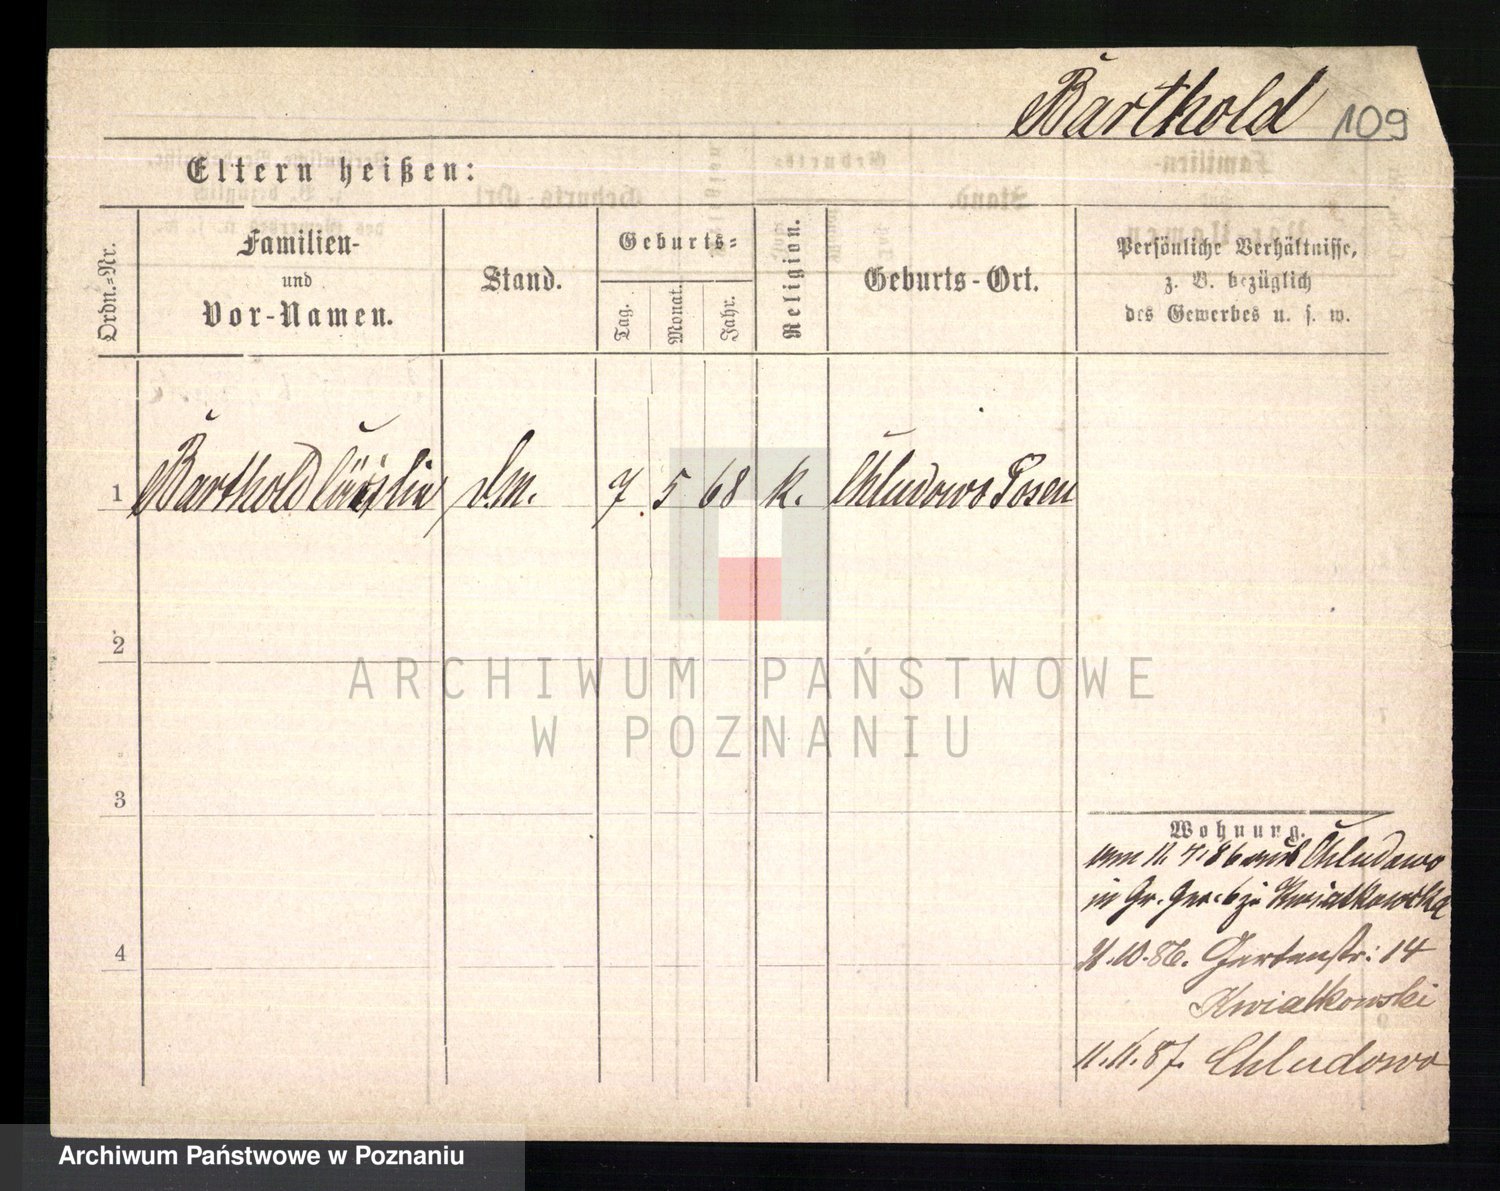 Barthold 109
Eltern heißen:
Ordn.-Nr.
Familien-
und
Vor-Namen.
Stand.
Geburts-
Tag.
Monat.
Jahr.
Religion.
Geburts-Ort.
Persönliche Verhältnisse,
z. B. bezüglich
des Gewerbes u. s. w.
1 Barthold d.m. 7 5 68 k. Chludowo Posen
2
3
4
Wohnung.
am 11. 7. 86 aus Chludowo
in Gr. Gerb. Kwiatkowska
10. 86. Gartenstr: 14
Kwiatkowski
11. 11. 87. Chludowo
ARCHIWUM PAŃSTWOWE
W POZNANIU
Archiwum Państwowe w Poznaniu